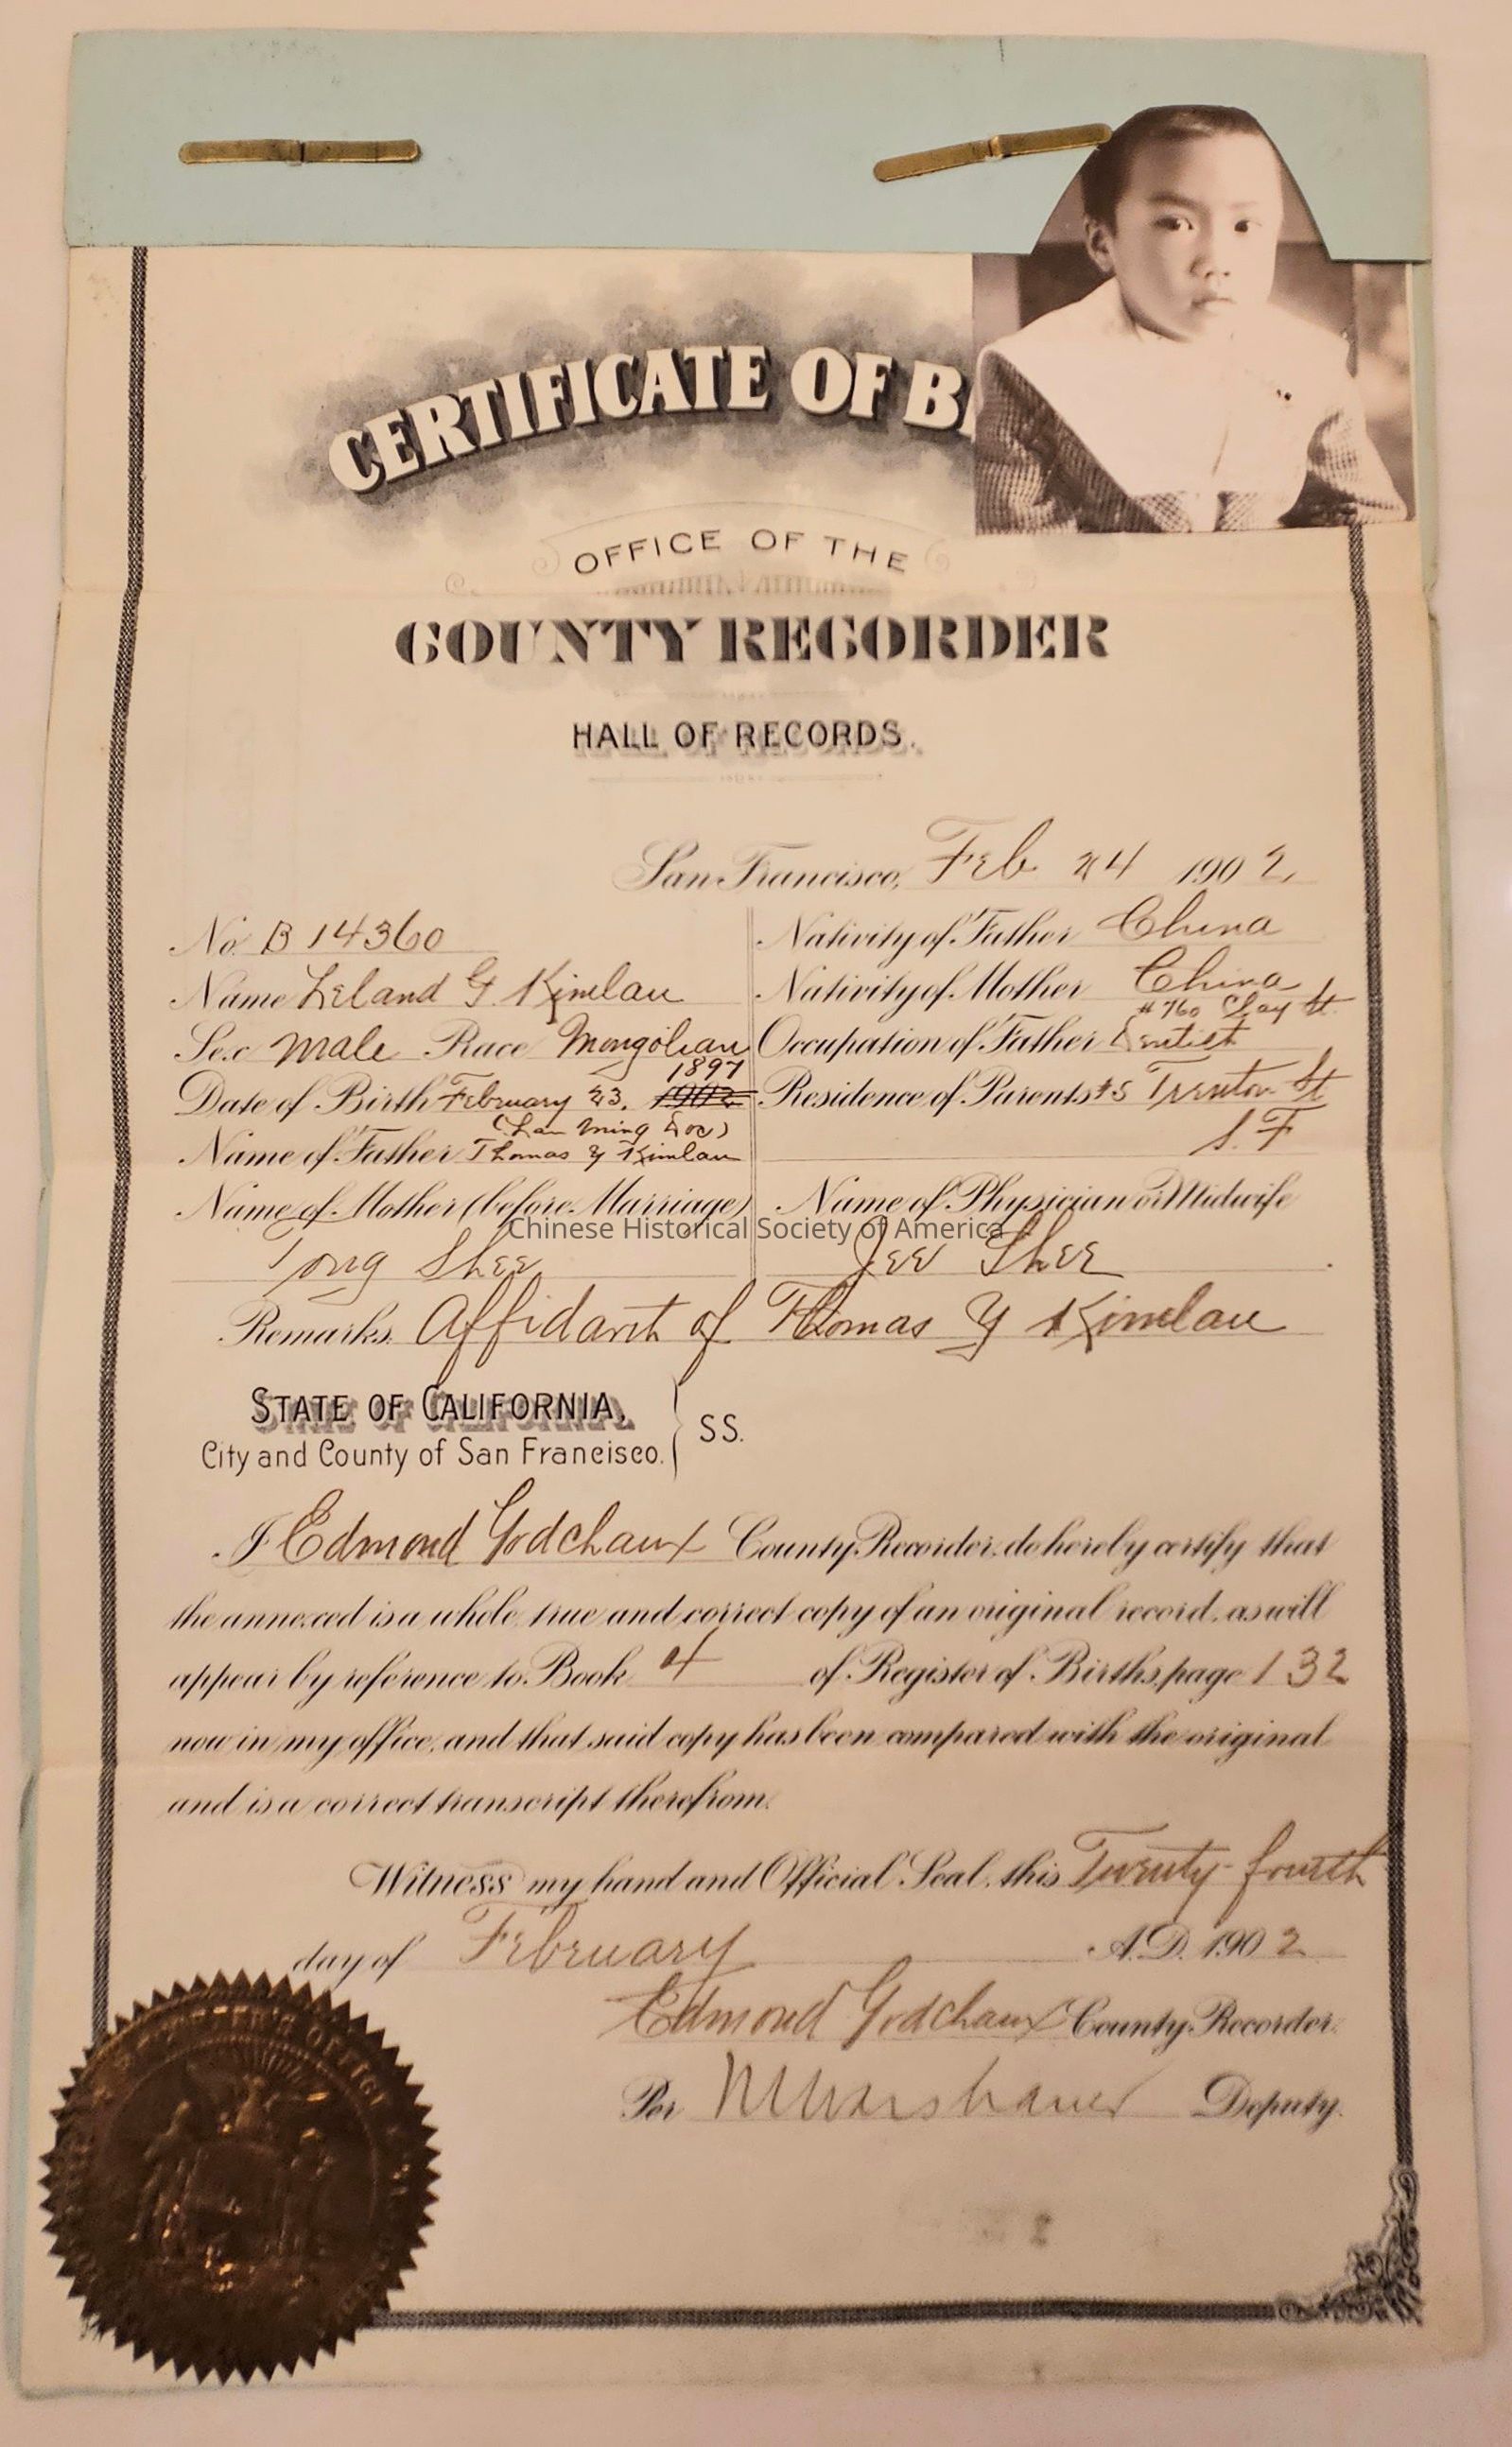 CERTIFICATE OF B
OFFICE OF THE
COUNTY RECORDER
HALL OF RECORDS.
San Francisco, Feb 24 1902
No. B 14360
Name Leland G. Kimlau
Sex Male Race Mongolian
1897
Date of Birth February 23, 1902
(Lau Ming
Name of Father Thomas Y Kimlau
Name of Mother (before Marriage)
Tong Shee
Nativity of Father China
Nativity of Mother China
# 760 Clay St.
Occupation of Father Dentist
Residence of Parents #5 Trenton St
S. F
Name of Physician or Midwife
Jee Shee
Chinese Historical Society of America
Remarks. Affidavit of Thomas Y Kimlau
STATE OF CALIFORNIA,
City and County of San Francisco. } SS.
I Edmond Godchaux County Recorder, do hereby certify that
the annexed is a whole, true and correct copy of an original record, as will
appear by reference to Book 4 of Register of Births, page 132
now in my office, and that said copy has been compared with the original
and is a correct transcript therefrom.
Witness my hand and Official Seal, this Twenty-fourth
day of February A.D. 1902
Edmond Godchaux County Recorder.
Per Deputy.